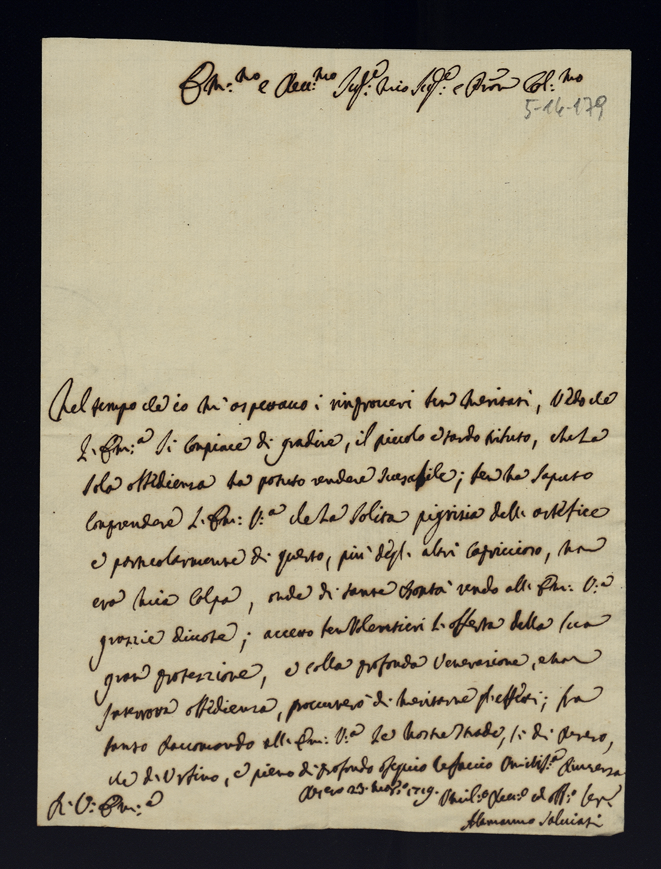 Em:mo e Reu:mo Sig:e mio Sig:e e Pron Col:mo
5-14-179
Nel tempo che io m'aspettavo i rimproueri ben meritati, Vedo che
L: Em:a Si Compiace di gradire, il piccolo e tardo tributo, che La
Sola obbidienza ha potuto rendere scusabile; ben ha Saputo
Comprendere L: Em: V:a che La Solita pigrizia delli artefice
e particolarmente di questo, più degl: altri Capriccioso, non
era mia Colpa, onde di tanta Bontà rendo all: Em: V:a
grazie diuote; accetto ben Volentieri L: offerta della Sua
gran protezzione, e colla profonda Venerazione, e non
obbidienza, procurerò di meritarne gl: effetti; fra
tanto Raccomando all: Em: V:a Le Nostre Strade, Si di Pesero,
che di Urbino, e pieno di profondo ossequio Le faccio Vmiliss:a Riuerenza
Di V: Em:a
Pesero 23: 1719. Vmil:o Deu:o ed obb:o Ser:
Alamanno Saluiati